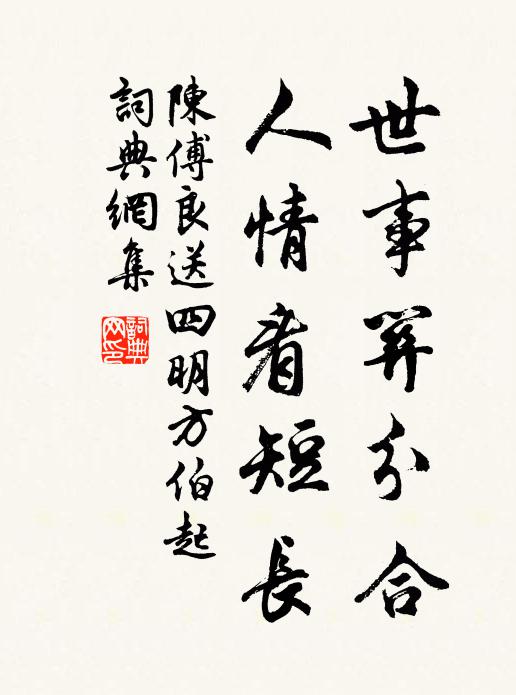 世事算分合
人情看短長
陳傅良送四明方伯起
詞典網集
詞典網印